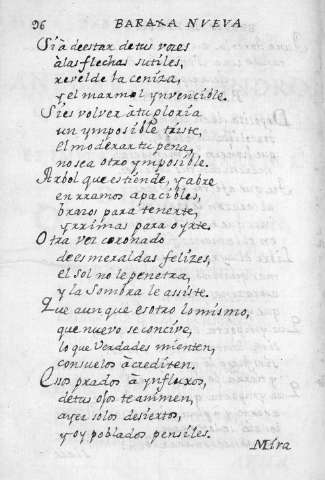 96 BARAXA NVEVA
Si à de estar de tus vozes
à las flechas sutiles,
revelde la ceniza,
y el marmol ynvencible.
Si es volver à tu gloria
un ymposible triste,
el moderar tu pena,
no sea otro ymposible.
Arbol que estiende, y abre
en rramos apacibles,
brazos para tenerte,
y rrimas para oyrte.
Otra vez coronado
de esmeraldas felizes,
el sol no le penetra,
y la sombra le assiste.
Que aun que es otro lo mismo,
que nuevo se concive,
lo que verdades mienten,
consuelos àcrediten.
Esos prados à ynfluxos,
de tus ojos te animen,
ayer solos desiertos,
y oy poblados pensiles.
Mira